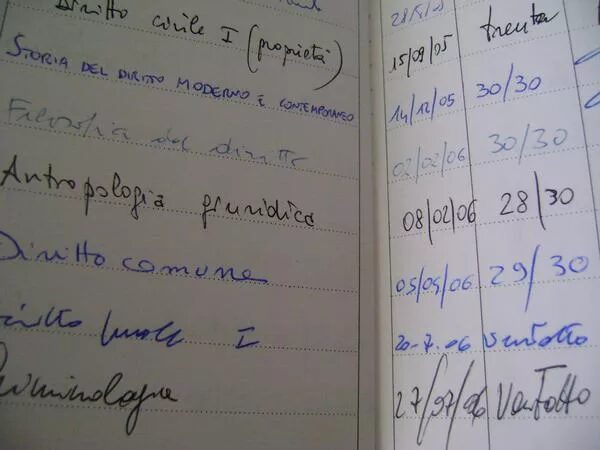 Diritto civile I (proprietà) 15/09/05 trenta
STORIA DEL DIRITTO MODERNO E CONTEMPORANEO 14/12/05 30/30
Filosofia del diritto 02/02/06 30/30
Antropologia giuridica 08/02/06 28/30
Diritto comune 05/04/06 29/30
I 20-7-06 Ventotto
Criminologia 27/07/06 Ventotto